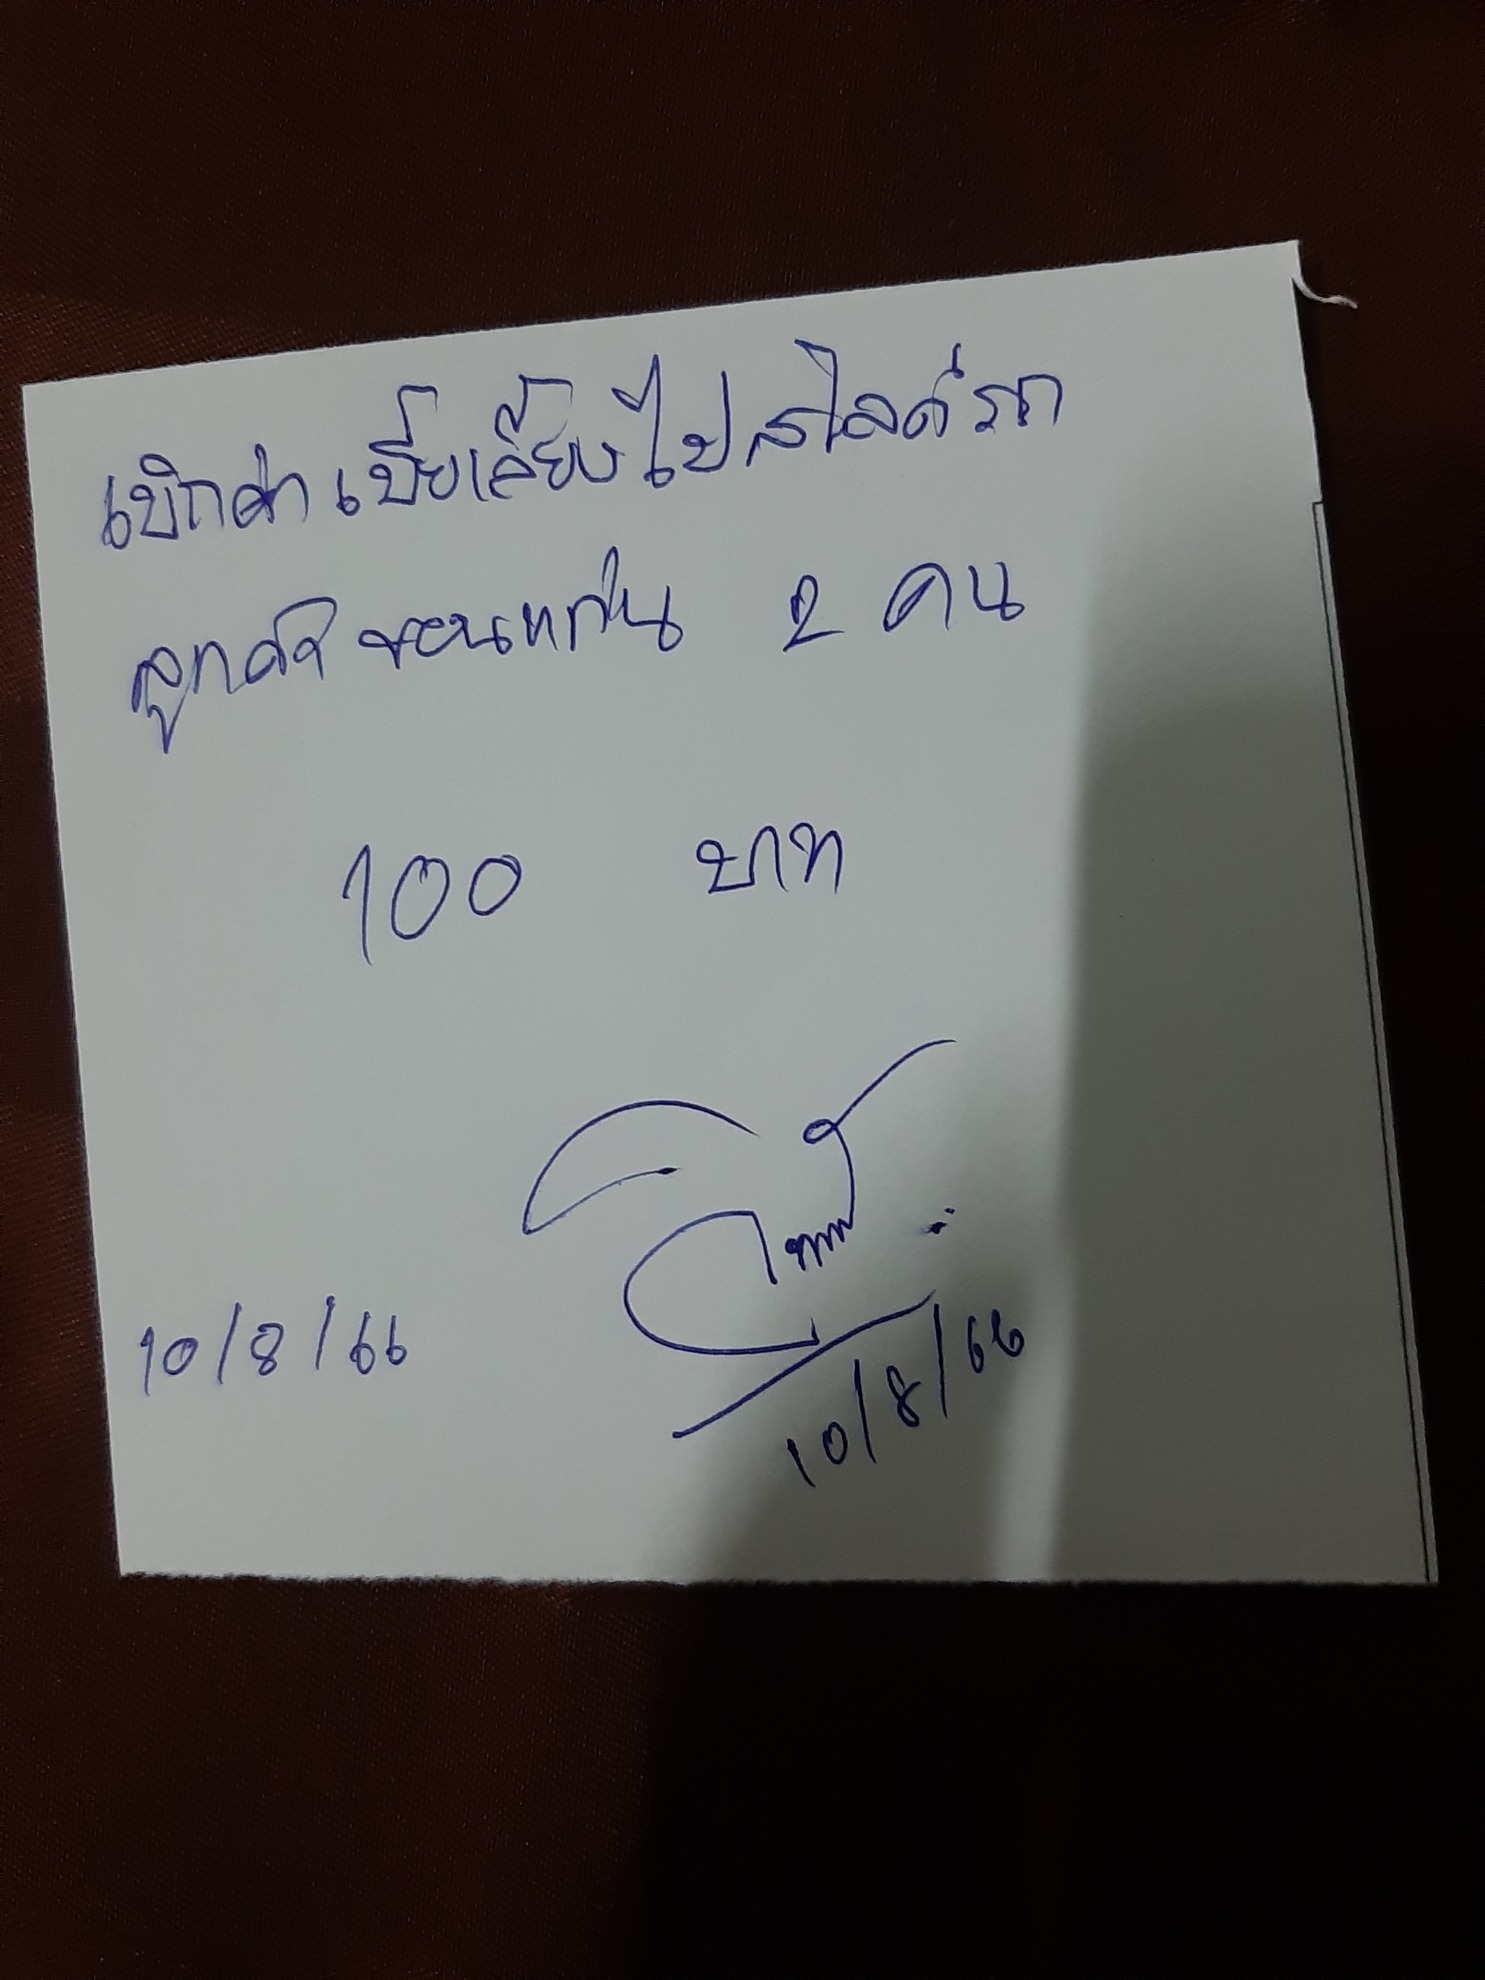 เบิกค่าเบี้ยเลี้ยงไปสไลด์รถ
ลูกค้า ขอนแก่น 2 คน
100 บาท
10/8/66
10/8/66